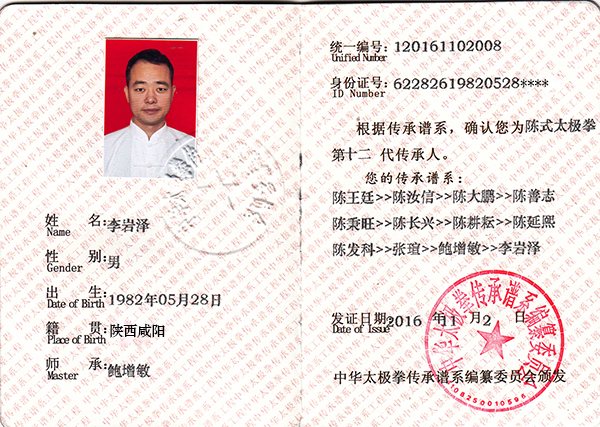 姓 名:李岩泽
Name
性 别:男
Gender
出 生:1982年05月28日
Date of Birth
籍 贯:陕西咸阳
Place of Birth
师 承:鲍增敏
Master
统一编号: 120161102008
Unified Number
身份证号: 62282619820528****
ID Number
根据传承谱系,确认您为陈式太极拳
第十二 代传承人。
您的传承谱系:
陈王廷>>陈汝信>>陈大鹏>>陈善志
陈秉旺>>陈长兴>>陈耕耘>>陈延熙
陈发科>>张瑄>>鲍增敏>>李岩泽
发证日期: 2016 年 11 月 2 日
Date of Issue
中华太极拳传承谱系编纂委员会
108250010596
中华太极拳传承谱系编纂委员会颁发